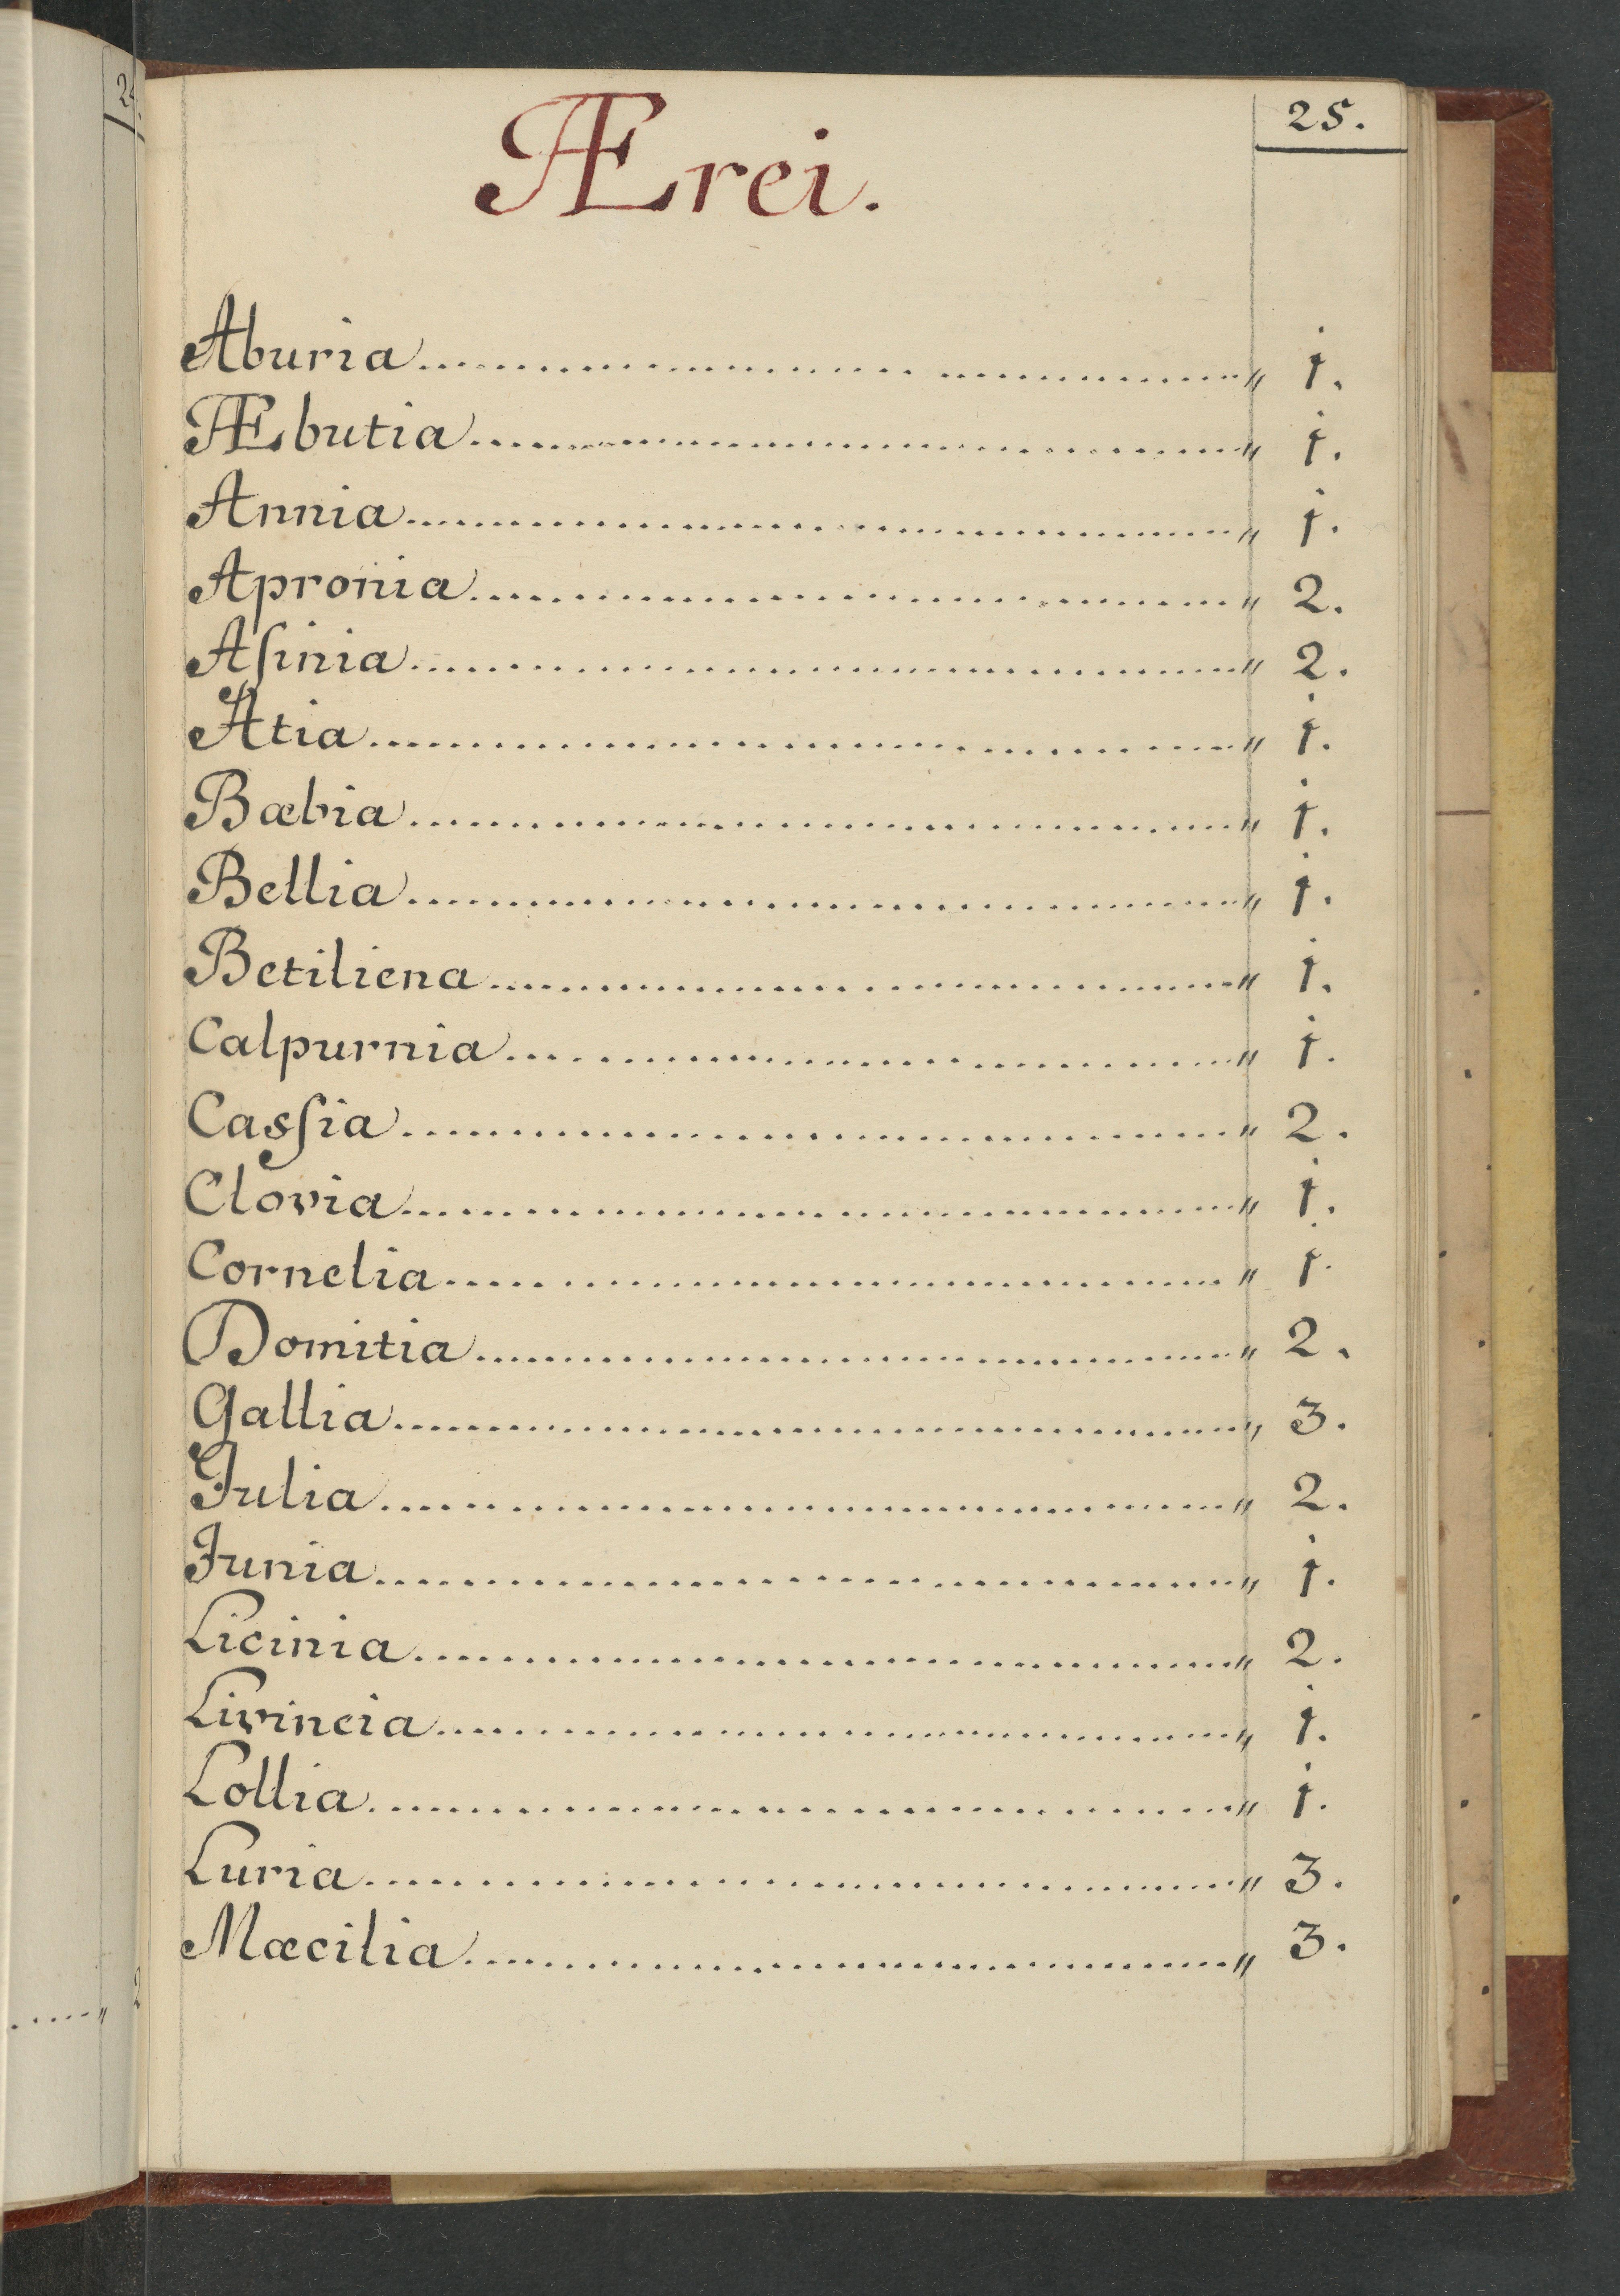 25.
Ærei.
Aburia " 1.
Æbutia " 1.
Annia " 1.
Apronia " 2.
Aſinia " 2.
Atia " 1.
Bæbia " 1.
Bellia " 1.
Betiliena " 1.
Calpurnia " 1.
Casſia " 2.
Clovia " 1.
Cornelia " 1.
Domitia " 2.
Gallia " 3.
Julia " 2.
Junia " 1.
Licinia " 2.
Livineia " 1.
Lollia " 1.
Luria " 3.
Mæcilia " 3.